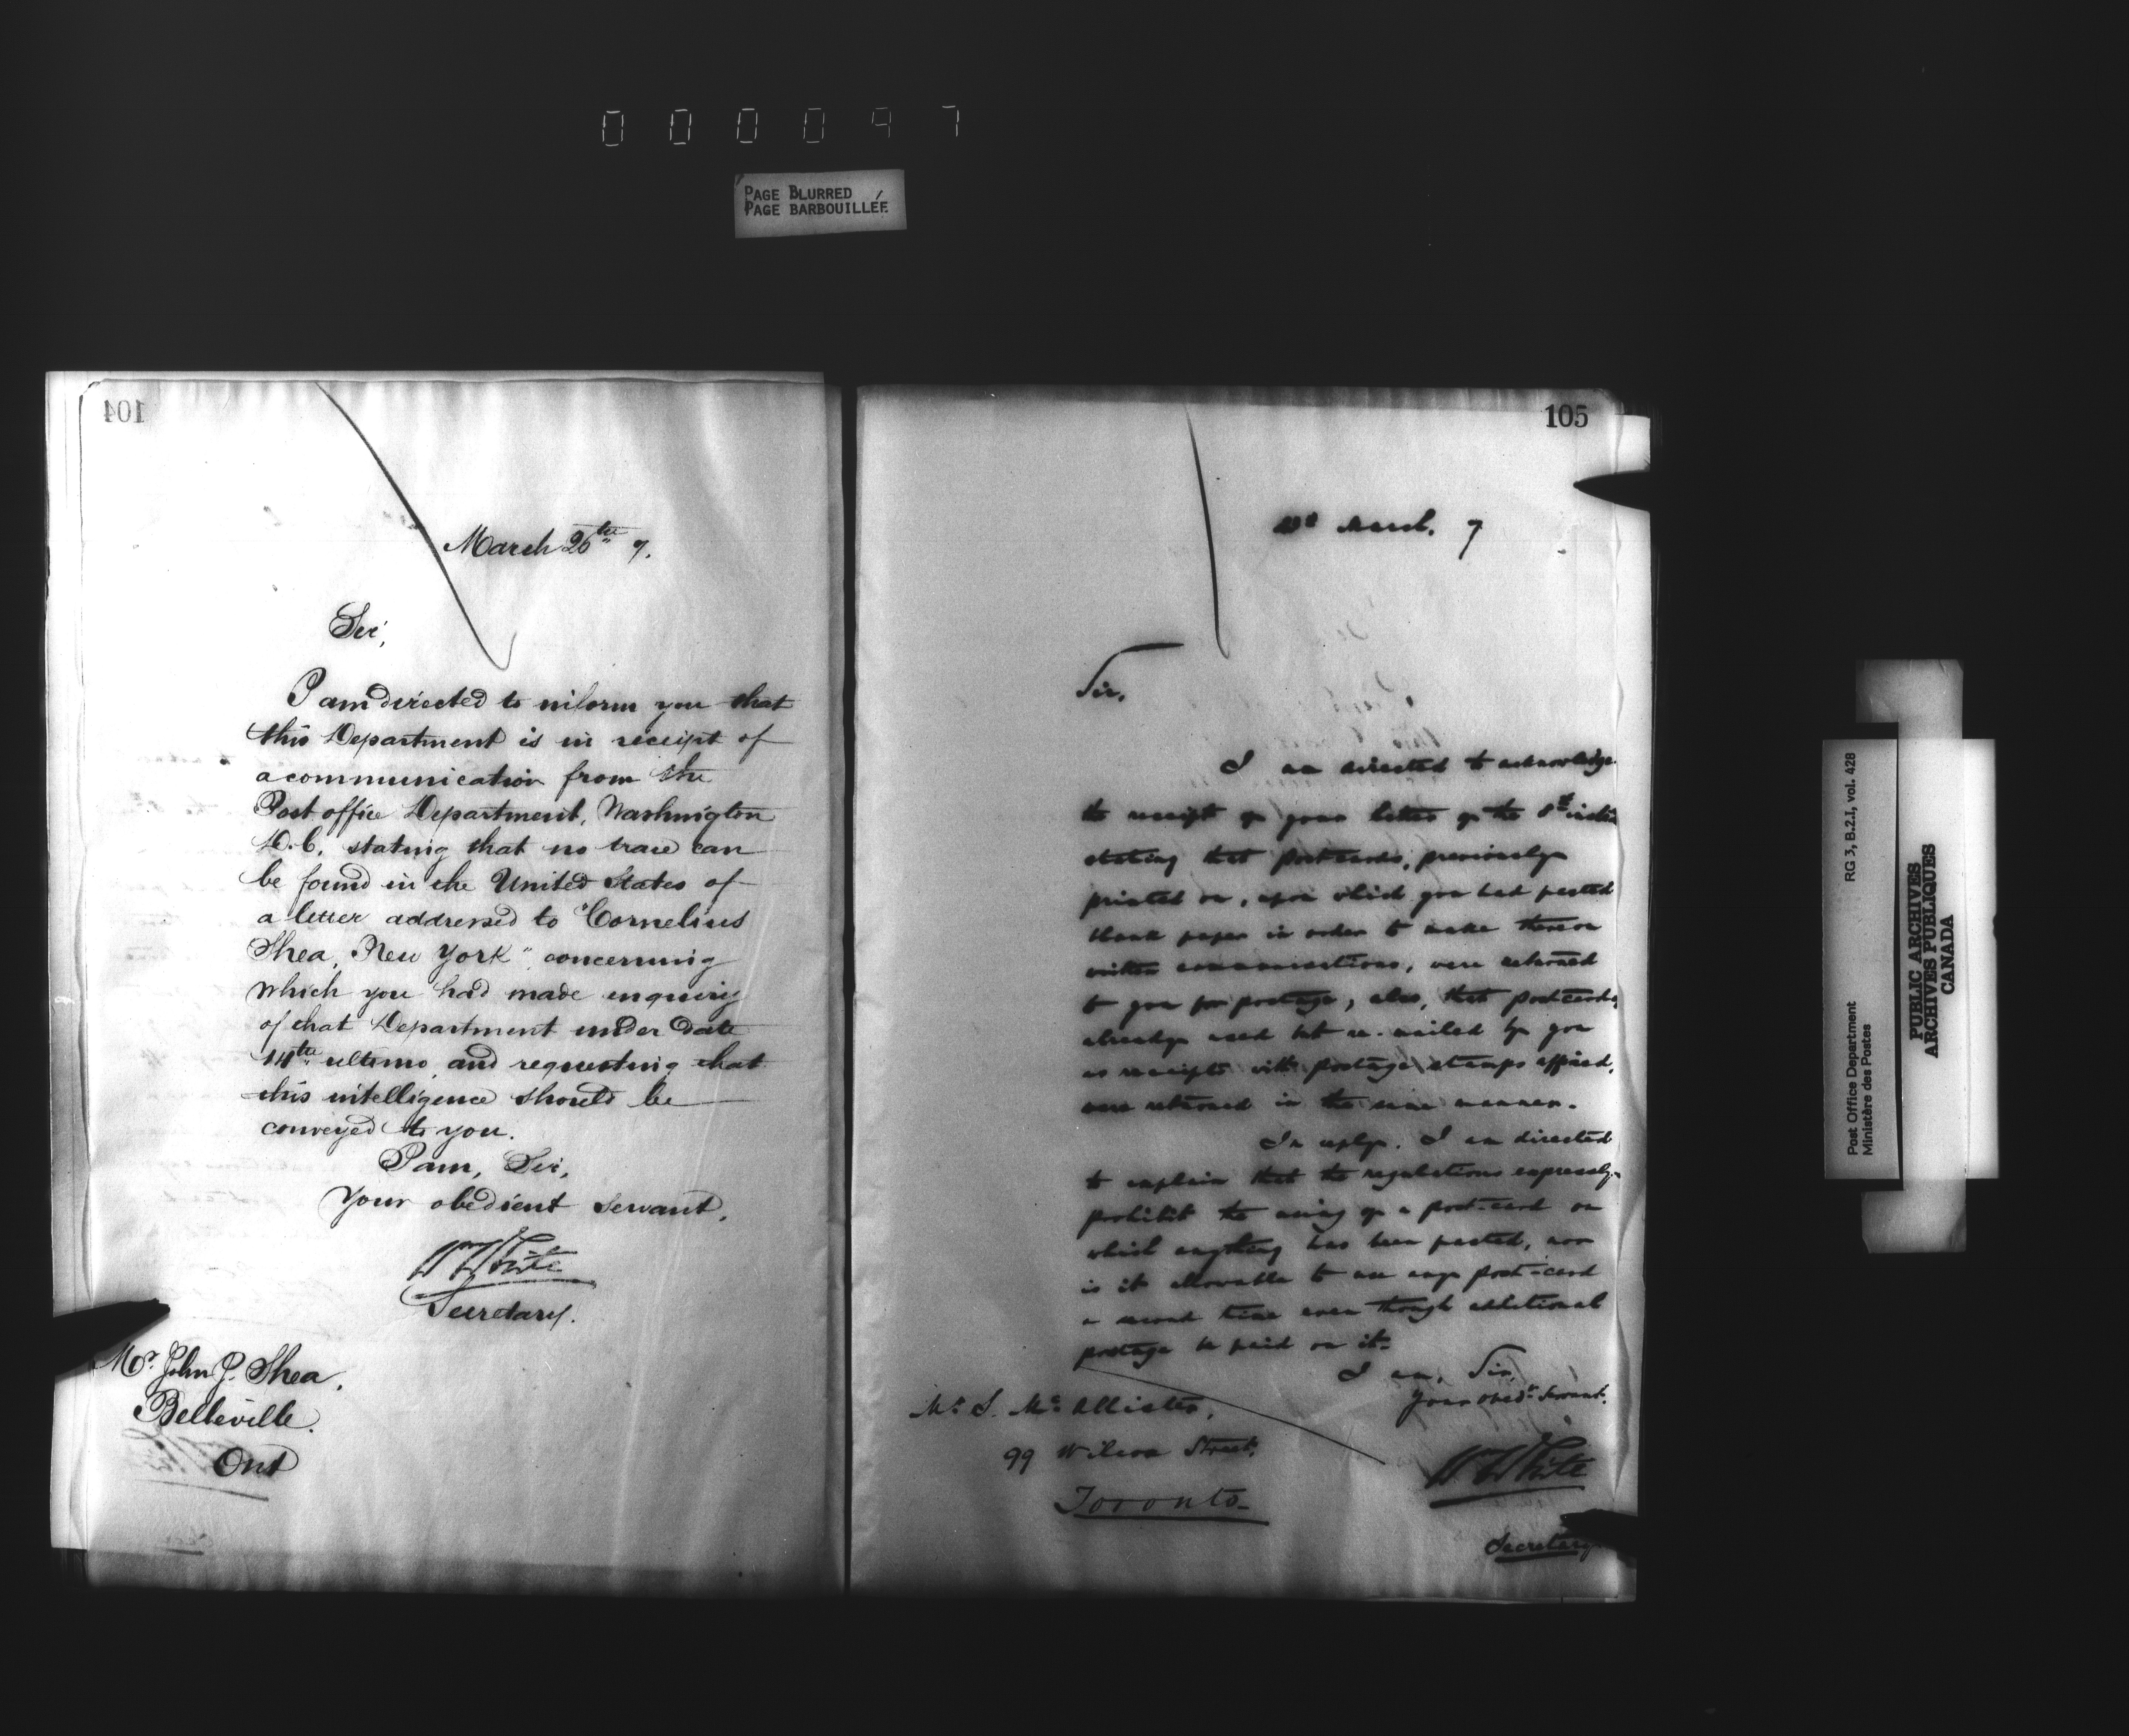 000097
PAGE BLURRED
PAGE BARBOUILLÉE
104
March 26th 7.
Sir,
I am directed to inform you that
this Department is in receipt of
a communication from the
Post office Department, Washington
D.C. stating that no trace can
be found in the United States of
a letter addressed to "Cornelius
Shea, New York" concerning
which you had made enquiry
of that Department under date
14th ultimo, and requesting that
this intelligence should be
conveyed to you.
I am, Sir,
Your obedient servant,
W White
Secretary.
Mr. John J. Shea,
Belleville.
Ont
105
March. 7
Sir,
I am directed to acknowledge
the receipt of your letter of the 8th
stating that postcards, previously
printed on, upon which you had pasted
blank paper in order to make thereon
written communications, were returned
to you for postage; also, that postcards,
already used but re-mailed by you
as receipts with postage stamps affixed,
were returned in the same manner.
In reply, I am directed
to explain that the regulations expressly
prohibit the using of a post-card on
which anything has been pasted, nor
is it allowable to use any post-card
a second time even though additional
postage be paid on it.
I am, Sir,
Your obedt. Servant.
W White
Secretary
Mr. S. McAllister,
99 Wilcox Street,
Toronto
Post Office Department
Ministère des Postes
RG 3, B.2.I, vol. 428
PUBLIC ARCHIVES
ARCHIVES PUBLIQUES
CANADA